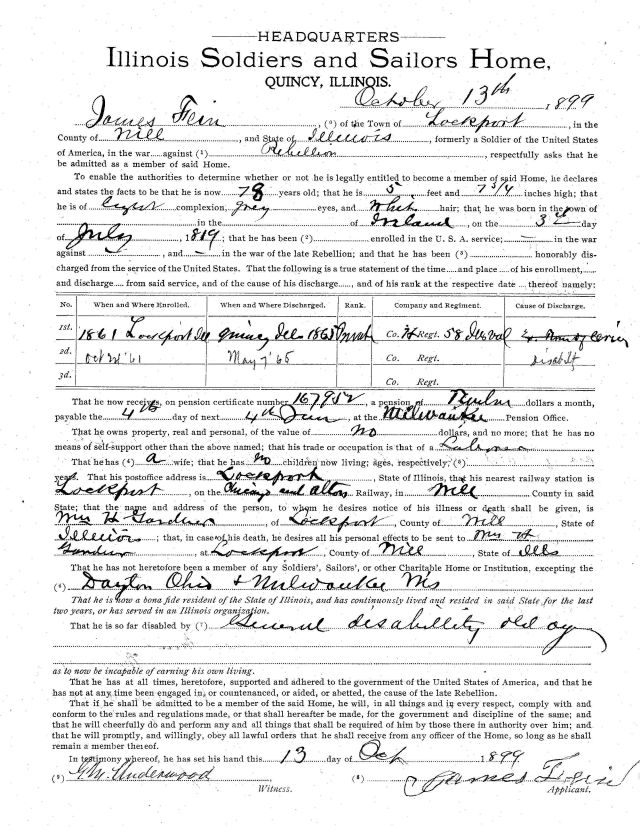 HEADQUARTERS
Illinois Soldiers and Sailors Home,
QUINCY, ILLINOIS.
October 13th 1899
James Fein, (0) of the Town of Lockport, in the
County of Will, and State of Illinois, formerly a Soldier of the United States
of America, in the war against (1) Rebellion, respectfully asks that he
be admitted as a member of said Home.
To enable the authorities to determine whether or not he is legally entitled to become a member of said Home, he declares
and states the facts to be that he is now 78 years old; that he is 5 feet and 7 3/4 inches high; that
he is of light complexion, grey eyes, and Whit hair; that he was born in the town of
in the of Ireland, on the 3rd day
of July, 1819; that he has been (2) enrolled in the U. S. A. service; — in the war
against , and — in the war of the late Rebellion; and that he has been (3) honorably dis-
charged from the service of the United States. That the following is a true statement of the time and place of his enrollment,
and discharge from said service, and of the cause of his discharge, and of his rank at the respective date thereof namely:
No. When and Where Enrolled. When and Where Discharged. Rank. Company and Regiment. Cause of Discharge.
1st. 1861 Lockport Ill Quincy Ills 1865 Co. H Regt. 58 Ills vol
2d. Oct 24 '61 May 7 '65 Co. Regt. Disabilt
3d. Co. Regt.
That he now receives, on pension certificate number 167952, a pension of Twelve dollars a month,
payable the 4th day of next 4th Jan, at the Milwaukee Pension Office.
That he owns property, real and personal, of the value of No dollars, and no more; that he has no
means of self-support other than the above named; that his trade or occupation is that of a Laborer
That he has (4) a wife; that he has No children now living; ages, respectively, (5)
years. That his postoffice address is Lockport, State of Illinois, that his nearest railway station is
Lockport, on the Chicago and Alton Railway, in Will County in said
State; that the name and address of the person, to whom he desires notice of his illness or death shall be given, is
Mrs H Gardner of Lockport, County of Will, State of
Illinois; that, in case of his death, he desires all his personal effects to be sent to Mrs H
Gardner, at Lockport, County of Will, State of Ills
That he has not heretofore been a member of any Soldiers', Sailors', or other Charitable Home or Institution, excepting the
(6) Dayton Ohio & Milwaukee
That he is now a bona fide resident of the State of Illinois, and has continuously lived and resided in said State for the last
two years, or has served in an Illinois organization.
That he is so far disabled by (7) General disabillity old age
as to now be incapable of earning his own living.
That he has at all times, heretofore, supported and adhered to the government of the United States of America, and that he
has not at any time been engaged in, or countenanced, or aided, or abetted, the cause of the late Rebellion.
That if he shall be admitted to be a member of the said Home, he will, in all things and in every respect, comply with and
conform to the rules and regulations made, or that shall hereafter be made, for the government and discipline of the same; and
that he will cheerfully do and perform any and all things that shall be required of him by those there in authority over him; and
that he will promptly, and willingly, obey all lawful orders that he shall receive from any officer of the Home, so long as he shall
remain a member thereof.
In testimony whereof, he has set his hand this 13 day of Oct 1899
(9) G.M. Underwood (8) James Fein
Witness. Applicant.